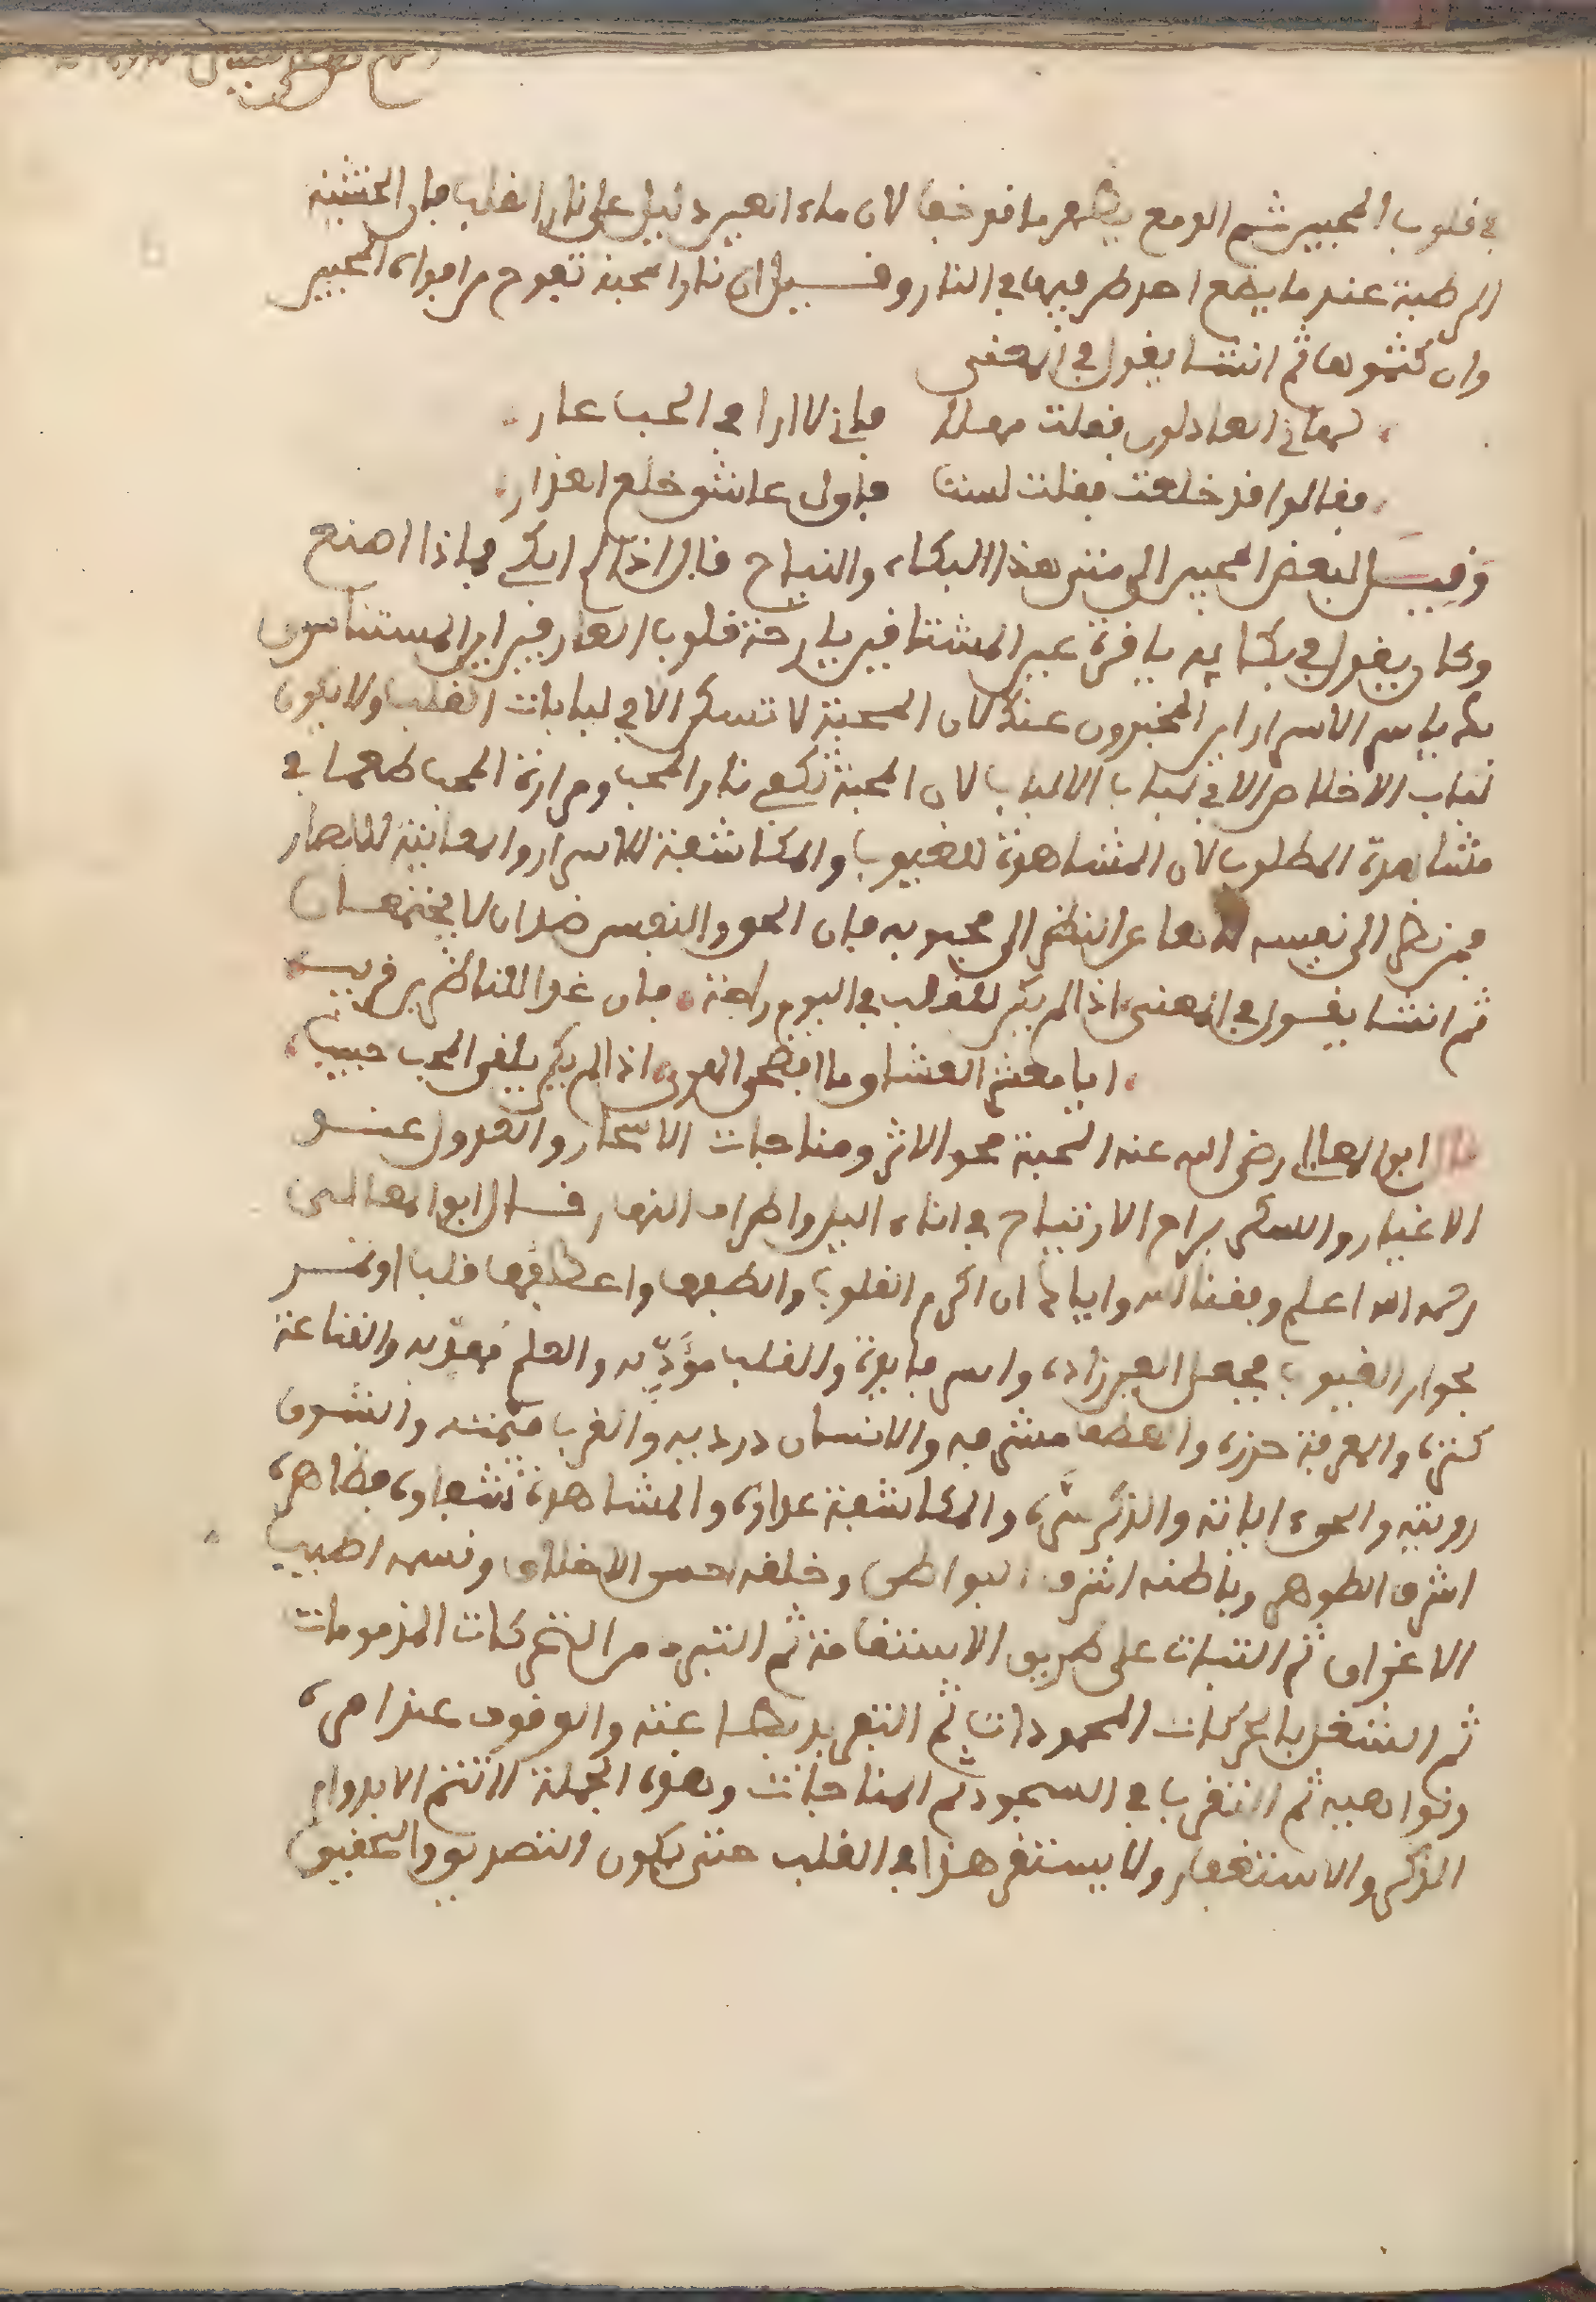 في قلوب المحبين ثم الدمع يظهر ما قد خفا لان ماء العين دليل على نار القلب مثل الخشبة
الرطبة عند ما يضع احد طرفيها في النار وقيل ان نار المحبة تفوح من افواه المحبين
وان كتموها ثم انشا يقول في المعنى
نهاني العاذلون فقلت مهلا فاني لا ارا في الحب عار
فقالوا قد خلعت فقلت لست فاول عاشق خلع العذار
وقيل لبعض المحبين الى متى هذا البكاء والنياح قال اذا لم ابكي فماذا اصنع
وكان يقول في بكايه يا قرة عين المشتاقين يا رحة قلوب العارفين اين المستانسون
بك يا سر الاسرار اين المخبرون عنك لان المحبة لا تسكن الا في لبابات القلب ولا يكون
لباب الاخلاص الا في لباب الالباب لان المحبة تكفي نار المحب ومرارة المحب طعمها في
مشاهدة المطلوب لان المشاهدة للغيوب والمكاشفة للاسرار والمعاينة للابصار
فمن نظر الى نفسه عن النظر الى محبوبه فان الحق والنفس ضدان لا يجتمعان
ثم انشا يقول في المعنى اذا لم يكن للقلب في اليوم راحة فان غدا للناظرين قريب
ايا معشر العشاق ما افضح الهوى اذا لم يكن يلقى المحب حبيب
قال ابو المعالي رضي الله عنه المحبة محو الاثر ومناجات الاسحار والعدول عن
الاغيار والسكر براح الارتياح في اناء اليل واطراف النهار قال ابو المعالي
رحمه الله اعلم وفقنا الله واياك ان اكرم القلوب والطفها واعطفها قلبا
بجوار الغيوب فجعل الصبر زاده والقلب مؤدبه والعلم مهذبه والقناعة
كنزه والمعرفة حرزه مشربه والانسان والقرب والشوق
والذكر والمكاشفة والمشاهدة فظاهره
اشرف الظوهر وباطنه اشرف البواطن وخلقه احسن الاخلاق اطيب
ثم الثبات على طريق الاستقامة ثم التبري من التحركات المذمومات
ثم الشغل بالحركات المحمودات ثم التفريد عنه والوقوف عند امره
ونواهيه ثم التقرب في السجود ثم المناجات وهذه الجملة لا تتم الا بدوام
الذكر والاستغفار ولا يستقر هذا في القلب حتى يكون التصديق والتحقيق